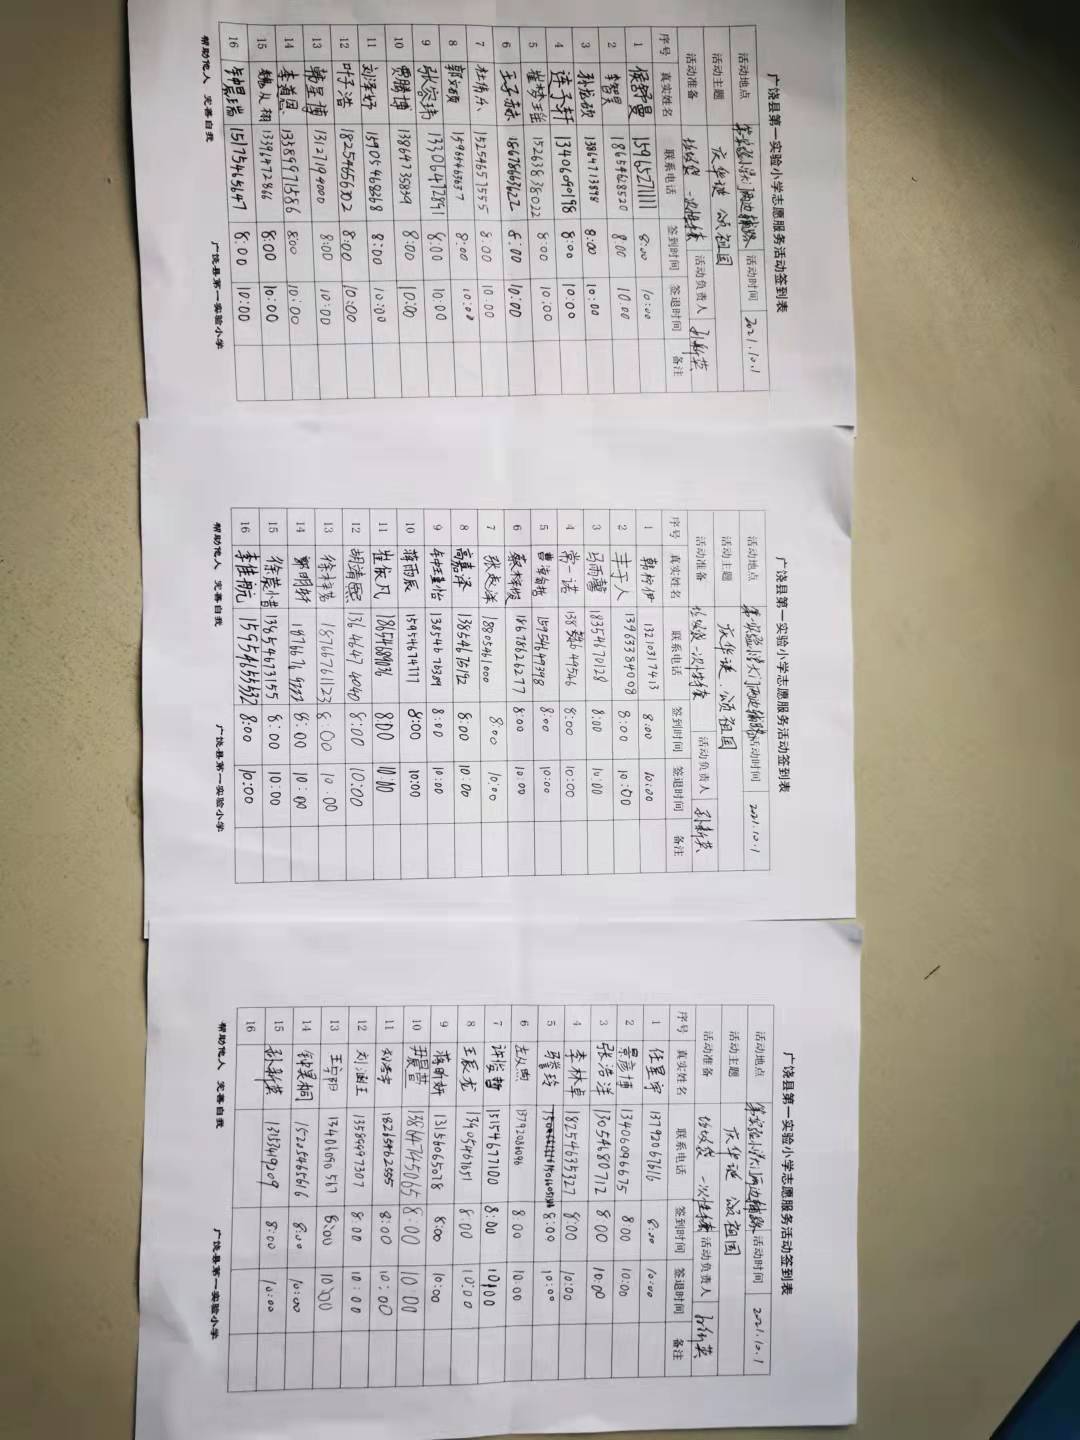 广饶县第一实验小学志愿服务活动签到表
活动地点 活动时间 2021.10.1
活动主题 庆华诞 颂祖国
活动准备 垃圾袋 一次性手套 活动负责人 孙新英
序号 真实姓名 联系电话 签到时间 签退时间 备注
1 15965271111 8:00 10:00
2 李智昊 18654628520 8:00 10:00
3 13864713898 8:00 10:00
4 连子轩 13406090198 8:00 10:00
5 15263838022 8:00 10:00
6 王子赫 18678663622 8:00 10:00
7 15254657555 8:00 10:00
8 8:00 10:00
9 张容玮 13306472891 8:00 10:00
10 贾腾博 13864735839 8:00 10:00
11 刘泽好 15905468368 8:00 10:00
12 叶子浩 18254656302 8:00 10:00
13 韩呈博 8:00 10:00
14 13389971586 8:00 10:00
15 8:00 10:00
16 15175465647 8:00 10:00
帮助他人 完善自我 广饶县第一实验小学
广饶县第一实验小学志愿服务活动签到表
活动地点 活动时间 2021.10.1
活动主题 庆华诞 颂祖国
活动准备 垃圾袋 一次性手套 活动负责人 孙新英
序号 真实姓名 联系电话 签到时间 签退时间 备注
1 13210317413 8:00 10:00
2 13963384098 8:00 10:00
3 马雨馨 18354670128 8:00 10:00
4 常一诺 8:00 10:00
5 15954649398 8:00 10:00
6 18678626277 8:00 10:00
7 8:00 10:00
8 高嘉泽 13854675192 8:00 10:00
9 8:00 10:00
10 蒋雨辰 15954674777 8:00 10:00
11 崔依凡 18654689036 8:00 10:00
12 胡清熙 13646474040 8:00 10:00
13 18766761123 8:00 10:00
14 郭明轩 8:00 10:00
15 13654673155 8:00 10:00
16 李佳航 15954655532 8:00 10:00
帮助他人 完善自我 广饶县第一实验小学
广饶县第一实验小学志愿服务活动签到表
活动地点 活动时间 2021.10.1
活动主题 庆华诞 颂祖国
活动准备 垃圾袋 一次性手套 活动负责人 孙新英
序号 真实姓名 联系电话 签到时间 签退时间 备注
1 任星宇 13792067616 8:00 10:00
2 景彦博 13406096675 8:00 10:00
3 张浩洋 13054680712 8:00 10:00
4 李林卓 18254635327 8:00 10:00
5 马誉玲 8:00 10:00
6 13792086096 8:00 10:00
7 许俊哲 15154677100 8:00 10:00
8 王辰龙 13905467651 8:00 10:00
9 蒋昕妍 13156065078 8:00 10:00
10 13864745065 8:00 10:00
11 18265462555 8:00 10:00
12 13589997307 8:00 10:00
13 13406090567 8:00 10:00
14 钟昊桐 15205465616 8:00 10:00
15 孙新英 8:00 10:00
16
帮助他人 完善自我 广饶县第一实验小学